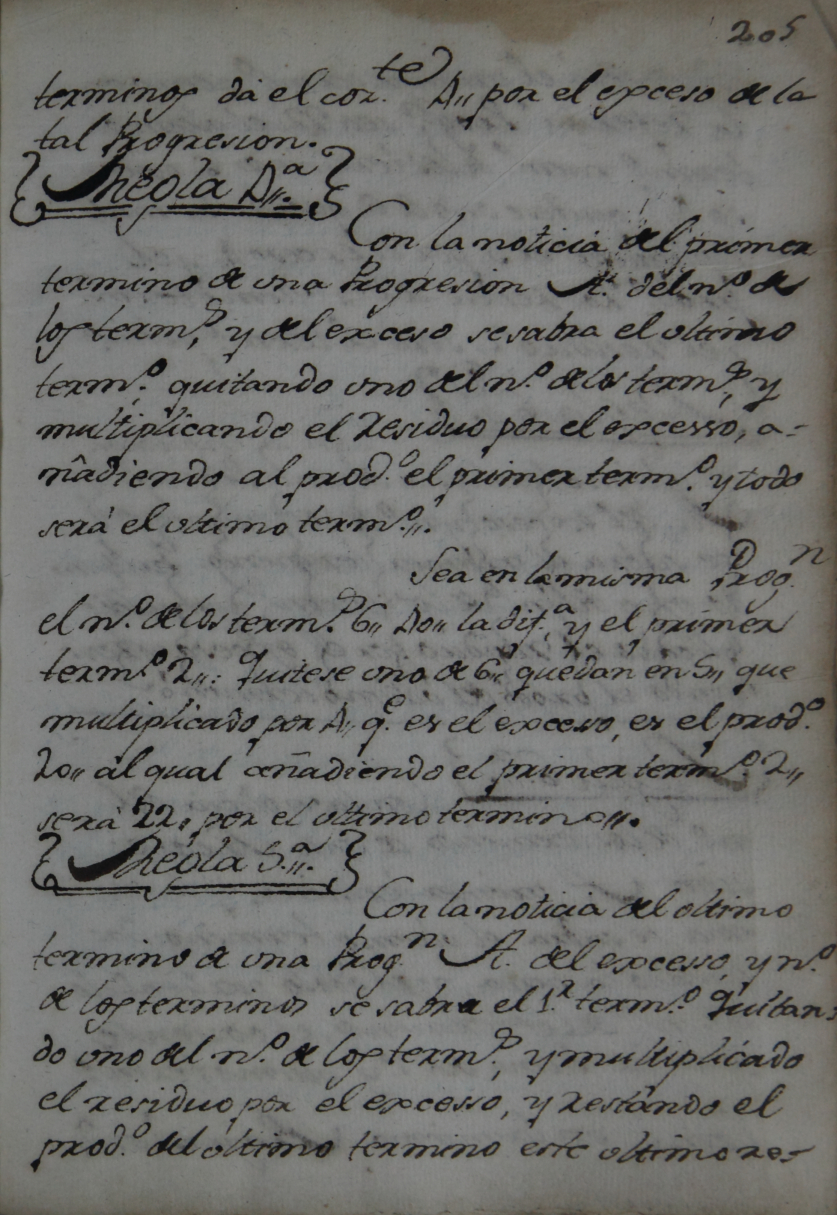 205
terminos dá el cor.te 4,, por el exceso de la
tal Progresion.
Regla 4,,a
Con la noticia del primer
termino de vna Progresion A. del n.o de
los term.s, y del exceso se sabra el vltimo
term.o quitando vno del n.o de los term.s, y
multiplicando el residuo por el excesso, a-
ñadiendo al prod.o el primer term.o y todo
será el vltimo term.o,,.
Sea en la misma Prog.n
el n.o de los term.s 6,, 4,, la dif.a y el primer
term.o 2,,: Quitese vno de 6,, quedan en 5,, que
multiplicado por 4,, q.e es el excesso, es el prod.o
20,, al qual añadiendo el primer term.o 2,,
será 22,, por el vltimo termino,,.
Regla 5.,,a
Con la noticia del vltimo
termino de vna Prog.n A. del excesso, y n.o
de los terminos se sabra el 1.r term.o Quitan-
do vno del n.o de los term.s, y multiplicado
el residuo por el excesso, y restando el
prod.o del vltimo termino este vltimo res-